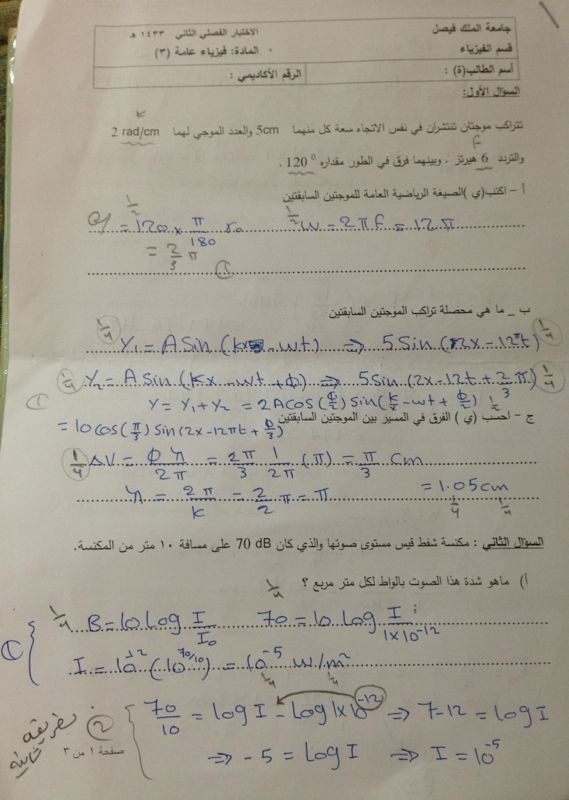 جامعة الملك فيصل
الاختبار الفصلي الثاني ١٤٣٣ هـ
قسم الفيزياء
المادة: فيزياء عامة (٣)
أسم الطالب(ة) :
الرقم الأكاديمي :
السؤال الأول:
k
تتراكب موجتان تنتشران في نفس الاتجاه سعة كل منهما 5cm والعدد الموجي لهما 2 rad/cm
f
والتردد 6 هيرتز . وبينهما فرق في الطور مقداره 120 ⁰ .
أ – اكتب(ي )الصيغة الرياضية العامة للموجتين السابقتين
1/2 ϕ = 120 × π/180 1/2 ω = 2πf = 12π
= 2/3 π
1
ب _ ما هي محصلة تراكب الموجتين السابقتين
1/4 Y₁ = A Sin (kx - ωt) ⇒ 5 Sin (2x - 12πt) 1/4
1/4 Y₂ = A Sin (kx - ωt + ϕ) ⇒ 5 Sin (2x - 12t + 2/3 π) 1/4
1 Y = Y₁ + Y₂ = 2A Cos (ϕ/2) Sin (kx - ωt + ϕ/2) 1/2
ج – احسب (ي ) الفرق في المسير بين الموجتين السابقتين
= 10 cos (π/3) Sin (2x - 12πt + π/3)
1/4 ΔV = ϕ λ / 2π = 2π/3 1/2π (π) = π/3 Cm
λ = 2π/k = 2/2 π = π = 1.05 cm
1/4 1/4
السؤال الثاني : مكنسة شفط قيس مستوى صوتها والذي كان 70 dB على مسافة ١٠ متر من المكنسة.
أ) ماهو شدة هذا الصوت بالواط لكل متر مربع ؟
1/4
1/4 B = 10 Log I/I₀ 70 = 10 Log I / 1x10⁻¹²
1 I = 10⁻¹² (10^70/10) = 10⁻⁵ w/m²
1/4 1/4
طريقة ثانية
2 70/10 = log I - log 1x10⁻¹² ⇒ 7-12 = log I
⇒ -5 = Log I ⇒ I = 10⁻⁵
صفحة ١ من ٣